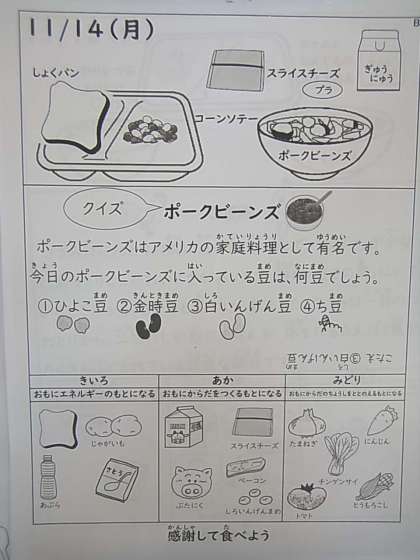 11/14(月)
しょくパン
スライスチーズ
プラ
ぎゅうにゅう
コーンソテー
ポークビーンズ
クイズ
ポークビーンズ
ポークビーンズはアメリカの家庭料理として有名です。
今日のポークビーンズに入っている豆は、何豆でしょう。
①ひよこ豆 ②金時豆 ③白いんげん豆 ④ち豆
こたえ ③白いんげん豆
きいろ あか みどり
おもにエネルギーのもとになる おもにからだをつくるもとになる おもにからだのちょうしをととのえるもとになる
じゃがいも
スライスチーズ
たまねぎ
にんじん
あぶら
さとう
ぶたにく
ベーコン
しろいんげんまめ
チンゲンサイ
トマト
とうもろこし
感謝して食べよう